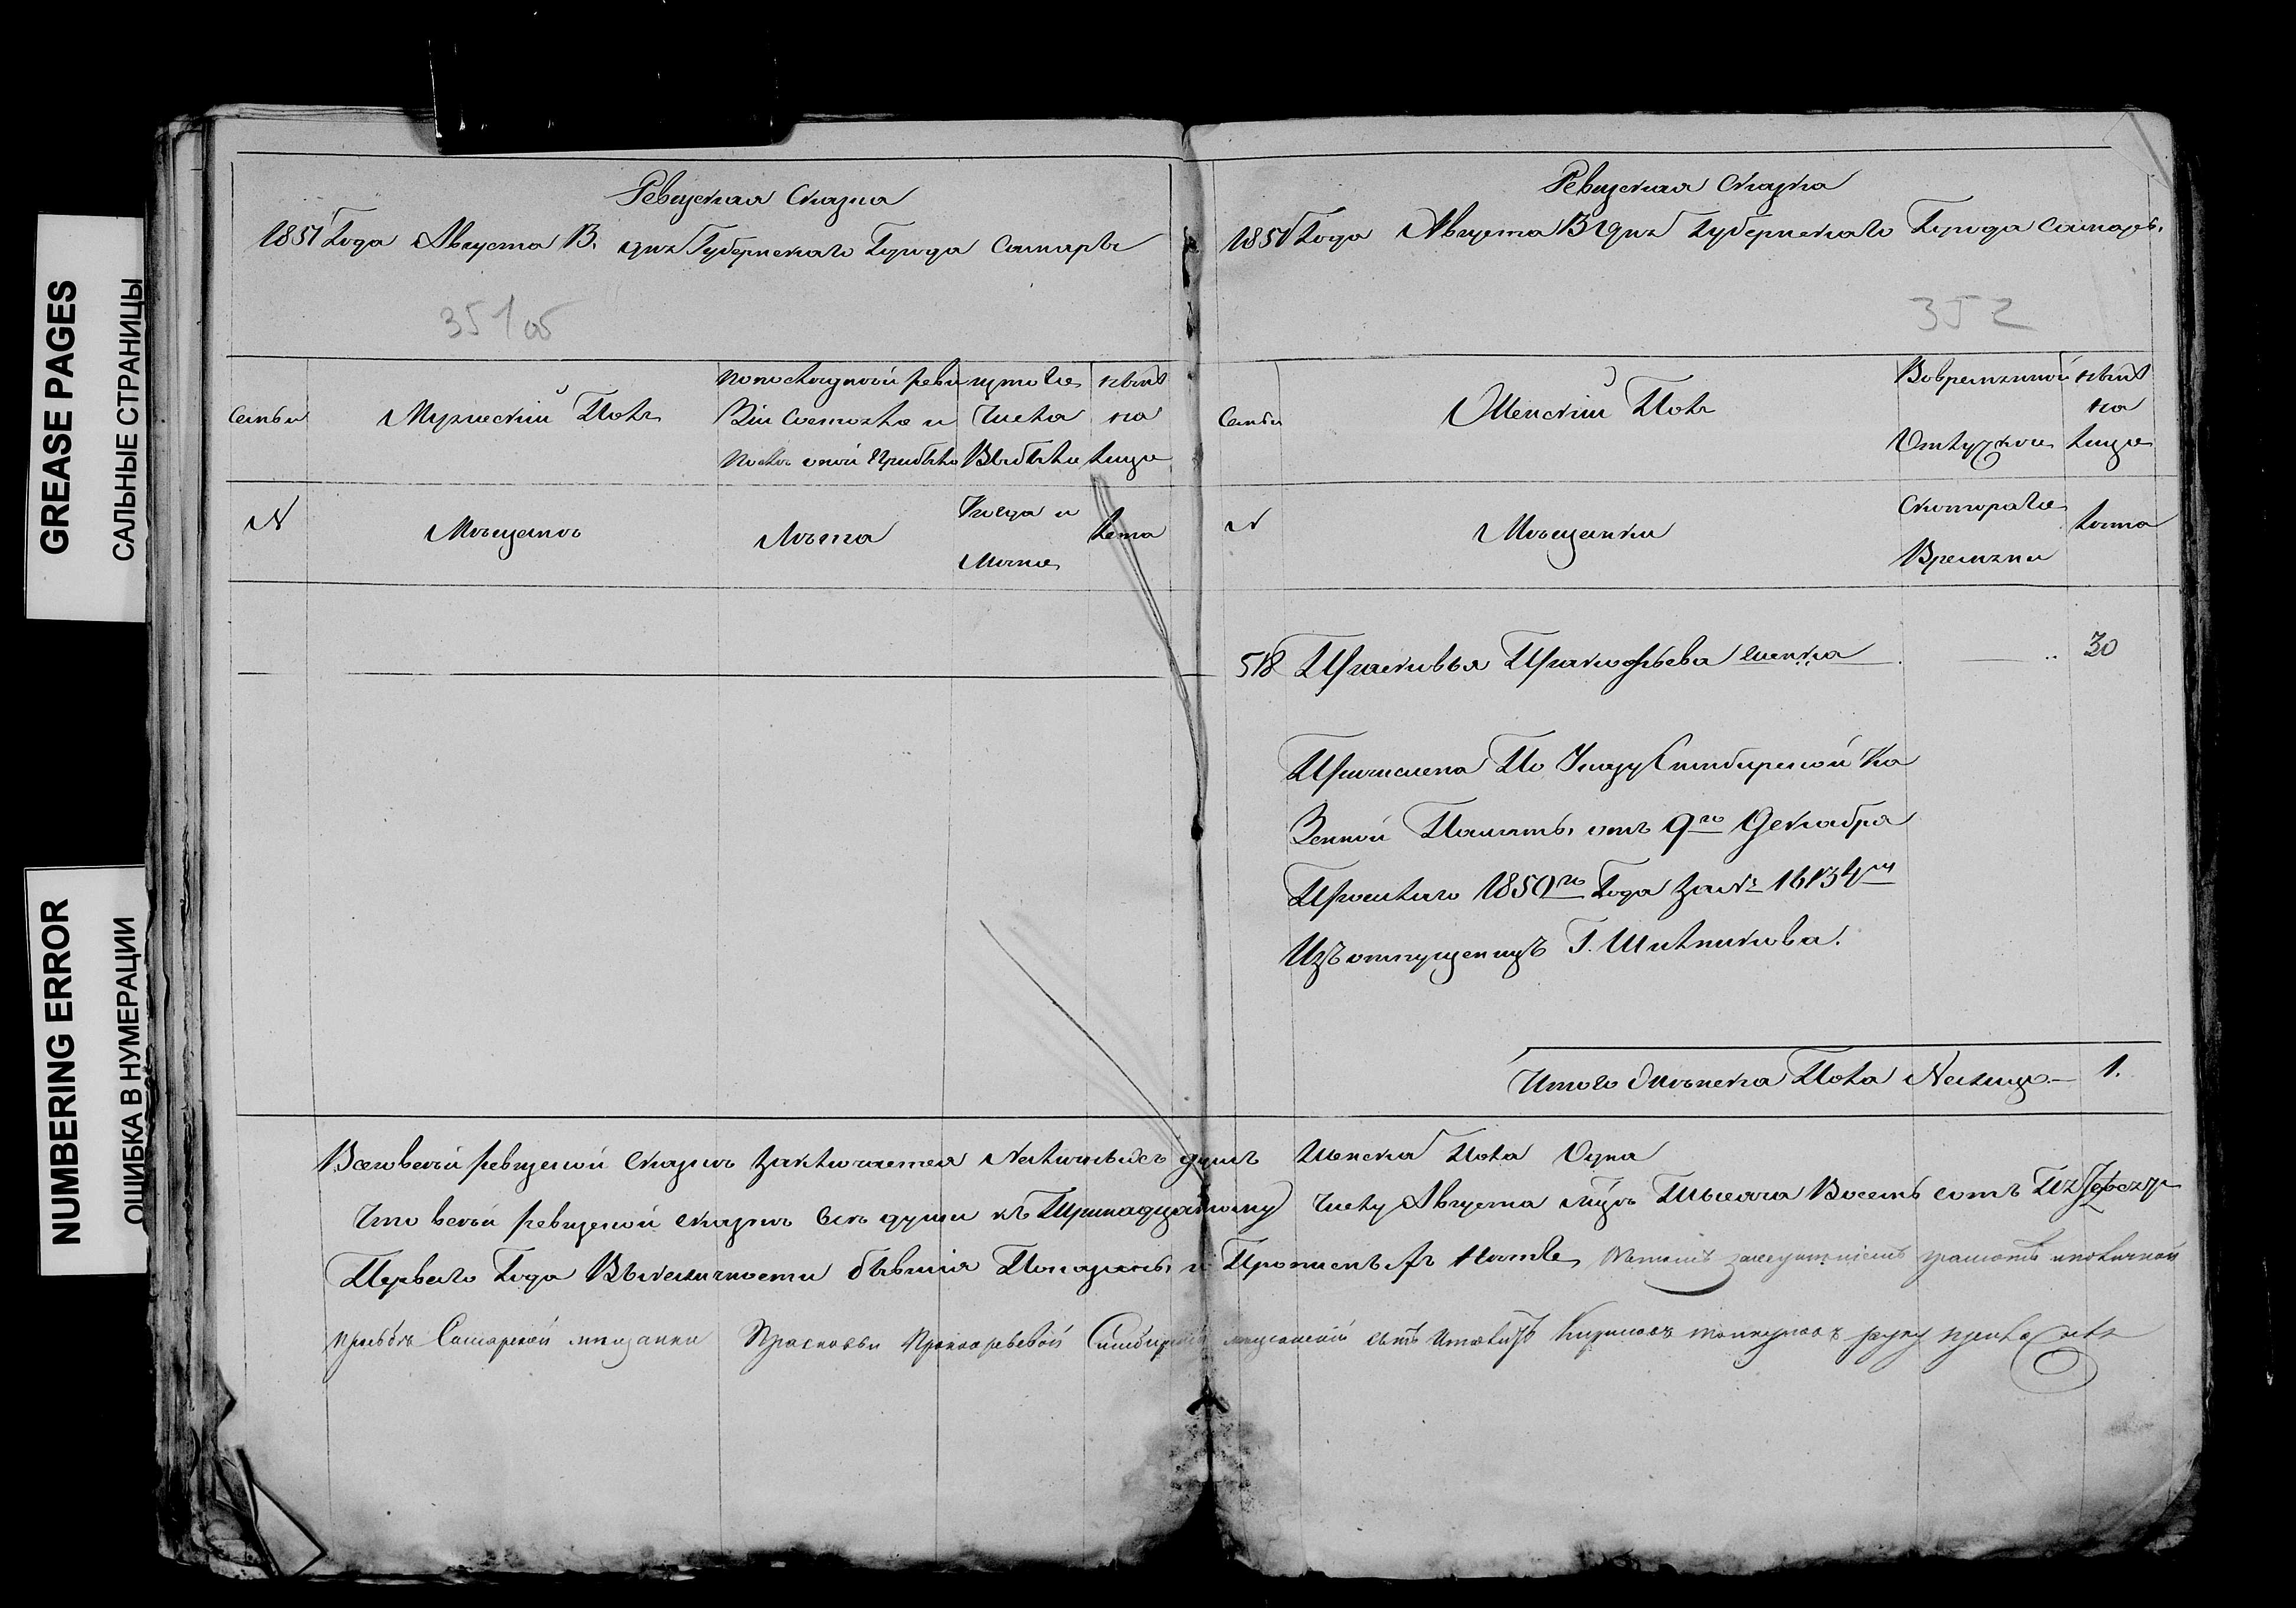 GREASE PAGES
САЛЬНЫЕ СТРАНИЦЫ
NUMBERING ERROR
ОШИБКА В НУМЕРАЦИИ
Ревизская Сказка
1851 Года Августа 13. дня Губернскаго Города Самары
351об
Семьи
Мужескій Полъ
По последней реви
зіи Состояло и
После оной Прибыло
изъ того
Числа
Выбыло
ныне
на
лицо
№
Мещане
Лета
Когда и
лета
Ревизская Сказка
1851 Года Августа 13 дня Губернскаго Города Самары.
352
Семьи
Женскій Полъ
Вовременной
Отлучкѣ
ныне
на
лицо
№
Мещанки
Скотораго
Времени
лета
518 Прасковья Прокофьева 30
Причислена По Указу Симбирской Ка
Зенной Палаты, отъ 9го Декабря
Прошлаго 1850го Года за № 16134м
Изъ отпущенницъ Г. Шилникова.
Итого Женска Пола Налицо 1.
Всего въ сей ревизской Сказке заключается Наличныхъ душъ Женска Пола Одна
Что въ сей ревизской сказке все души къ Тринадцатому числу Августа Тысяча Восемь сотъ Пятьдесятъ
Перваго Года Въ наличности бывшія Показаны, и Пропущенныхъ нетъ
прозьбе Самарской мещанки Прасковьи Прокофьевой Симбирскій мещанскій сынъ руку приложилъ